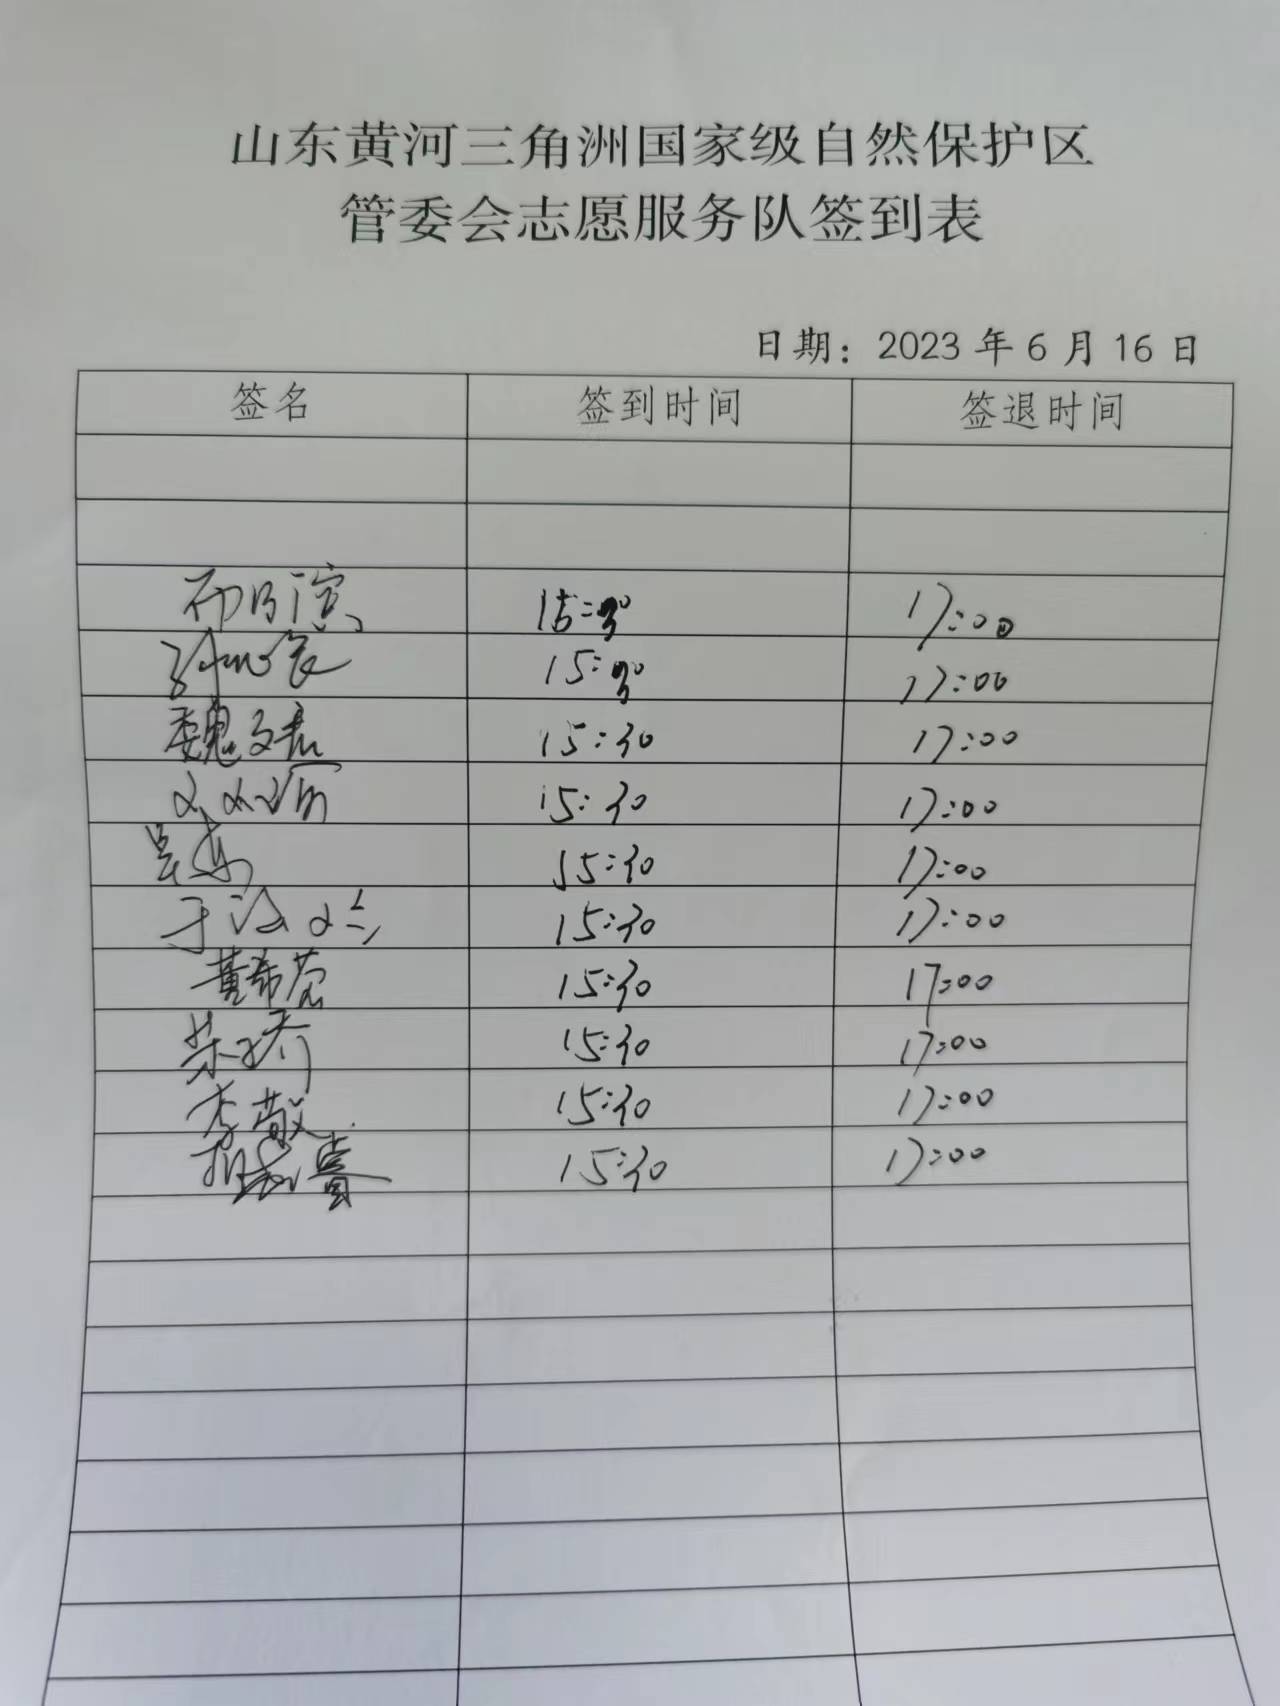 山东黄河三角洲国家级自然保护区
管委会志愿服务队签到表
日期：2023年6月16日
签名 签到时间 签退时间
15:30 17:00
15:30 17:00
魏文 15:30 17:00
15:30 17:00
15:30 17:00
于 15:30 17:00
黄希 15:30 17:00
15:30 17:00
李敬 15:30 17:00
15:30 17:00